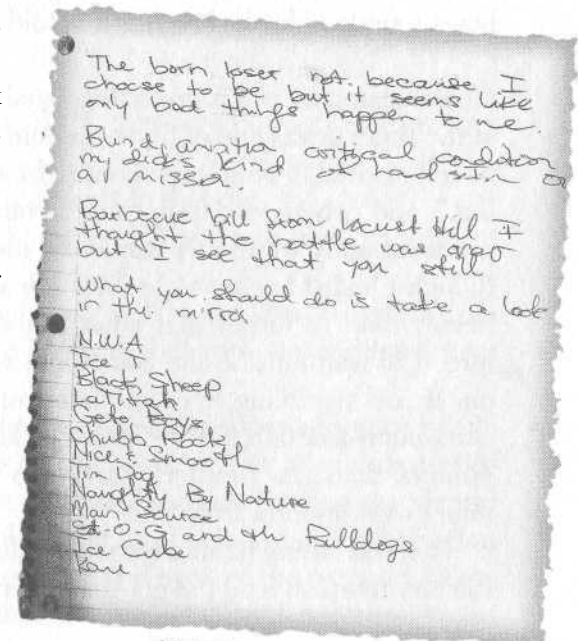 The born loser not because I
choose to be but it seems like
only bad things happen to me.
Blind, critical condition
my dicks kind of hand
a missor.
Barbecue bill from Locust Hill I
thought the battle was
but I see that you still
What you should do is take a look
in the mirror
N.W.A
Ice T
Black Sheep
Latifah
Geto Boys
Chubb Rock
Nice & Smooth
Tim Dog
Naughty By Nature
Main Source
Ed. O-G and the Bulldogs
Ice Cube
Kane